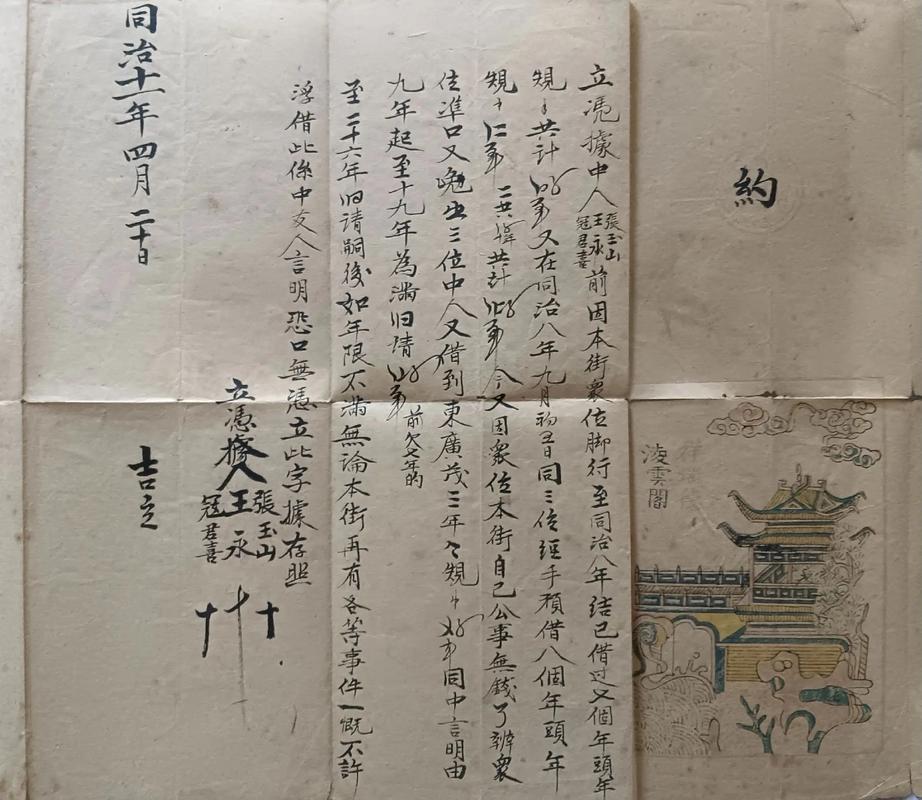 約
凌雲閣
立憑據中人張玉山王永冠君喜前因本街衆位脚行至同治八年結已借过又個年頭年
規共計又在同治八年九月初五日同三位經手預借八個年頭年
規二共共計今又因衆位本街自己公事無錢了辦衆
位準口又晚出三位中人又借到東廣茂三年々規同中言明由
九年起至十九年為滿旧請前欠年的
至二十六年旧請嗣後如年限不滿無論本街再有各等事件一概不許
浮借此係中友人言明恐口無憑立此字據存照
立憑據人張玉山王永冠君喜十十十
同治十一年四月二十日
吉立